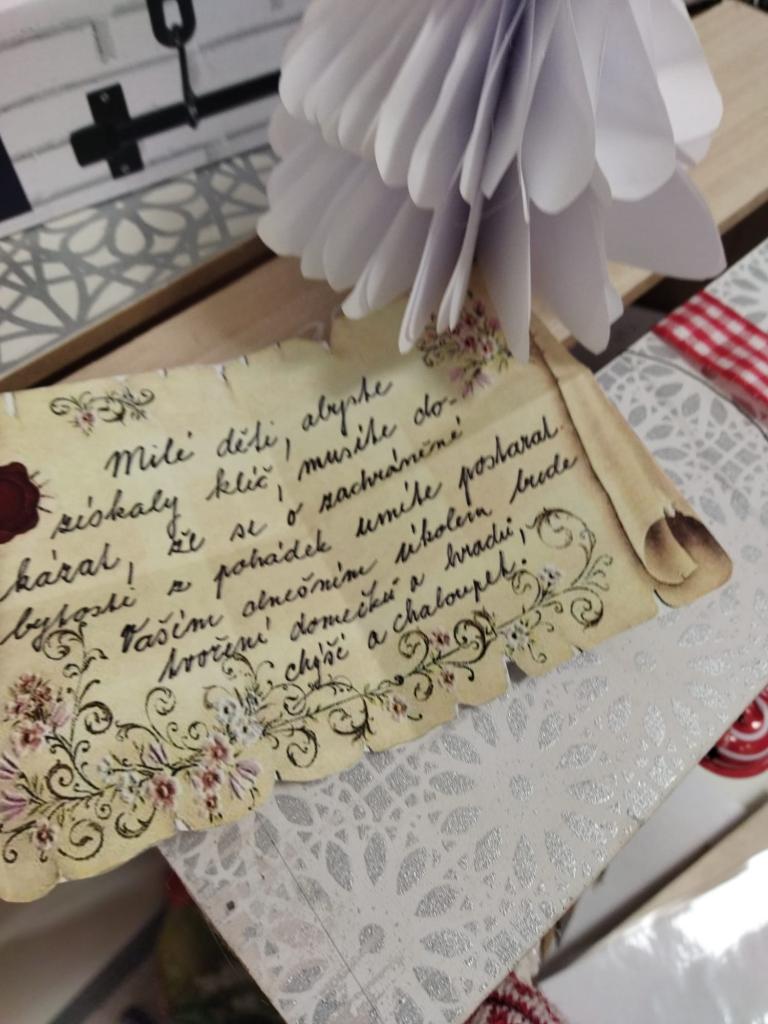 Milé děti, abyste
získaly klíč, musíte do-
kázat, že se o zachráněné
bytosti z pohádek umíte postarat.
Vaším dnešním úkolem bude
tvoření domečků a hradů,
chýší a chaloupek.